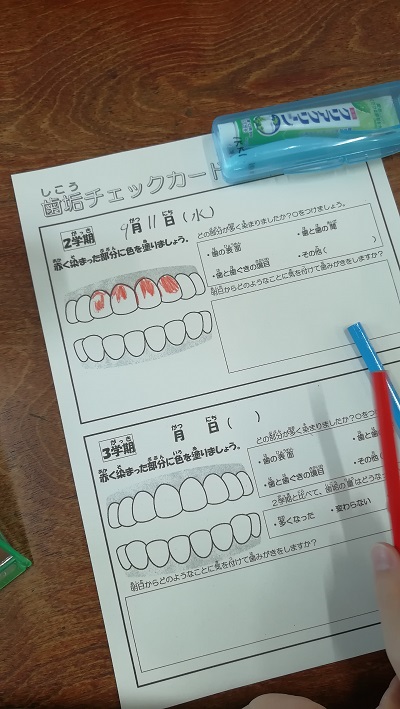 しこう
歯垢チェックカード
がっき
2学期
9月11日(水)
がつ にち
赤く染まった部分に色を塗りましょう。
どの部分が多く染まりましたか?○をつけましょう。
・歯の表面
・歯と歯の間
・歯と歯ぐきの境目
・その他( )
明日からどのようなことに気を付けて歯みがきをしますか?
がっき
3学期
がつ にち
月 日( )
赤く染まった部分に色を塗りましょう。
どの部分が多く染まりましたか?○をつ
・歯の表面
・歯と歯
・歯と歯ぐきの境目
・その他(
2学期と比べて、歯垢の量はどうな
・多くなった ・変わらない
明日からどのようなことに気を付けて歯みがきをしますか?
クリアクリーン